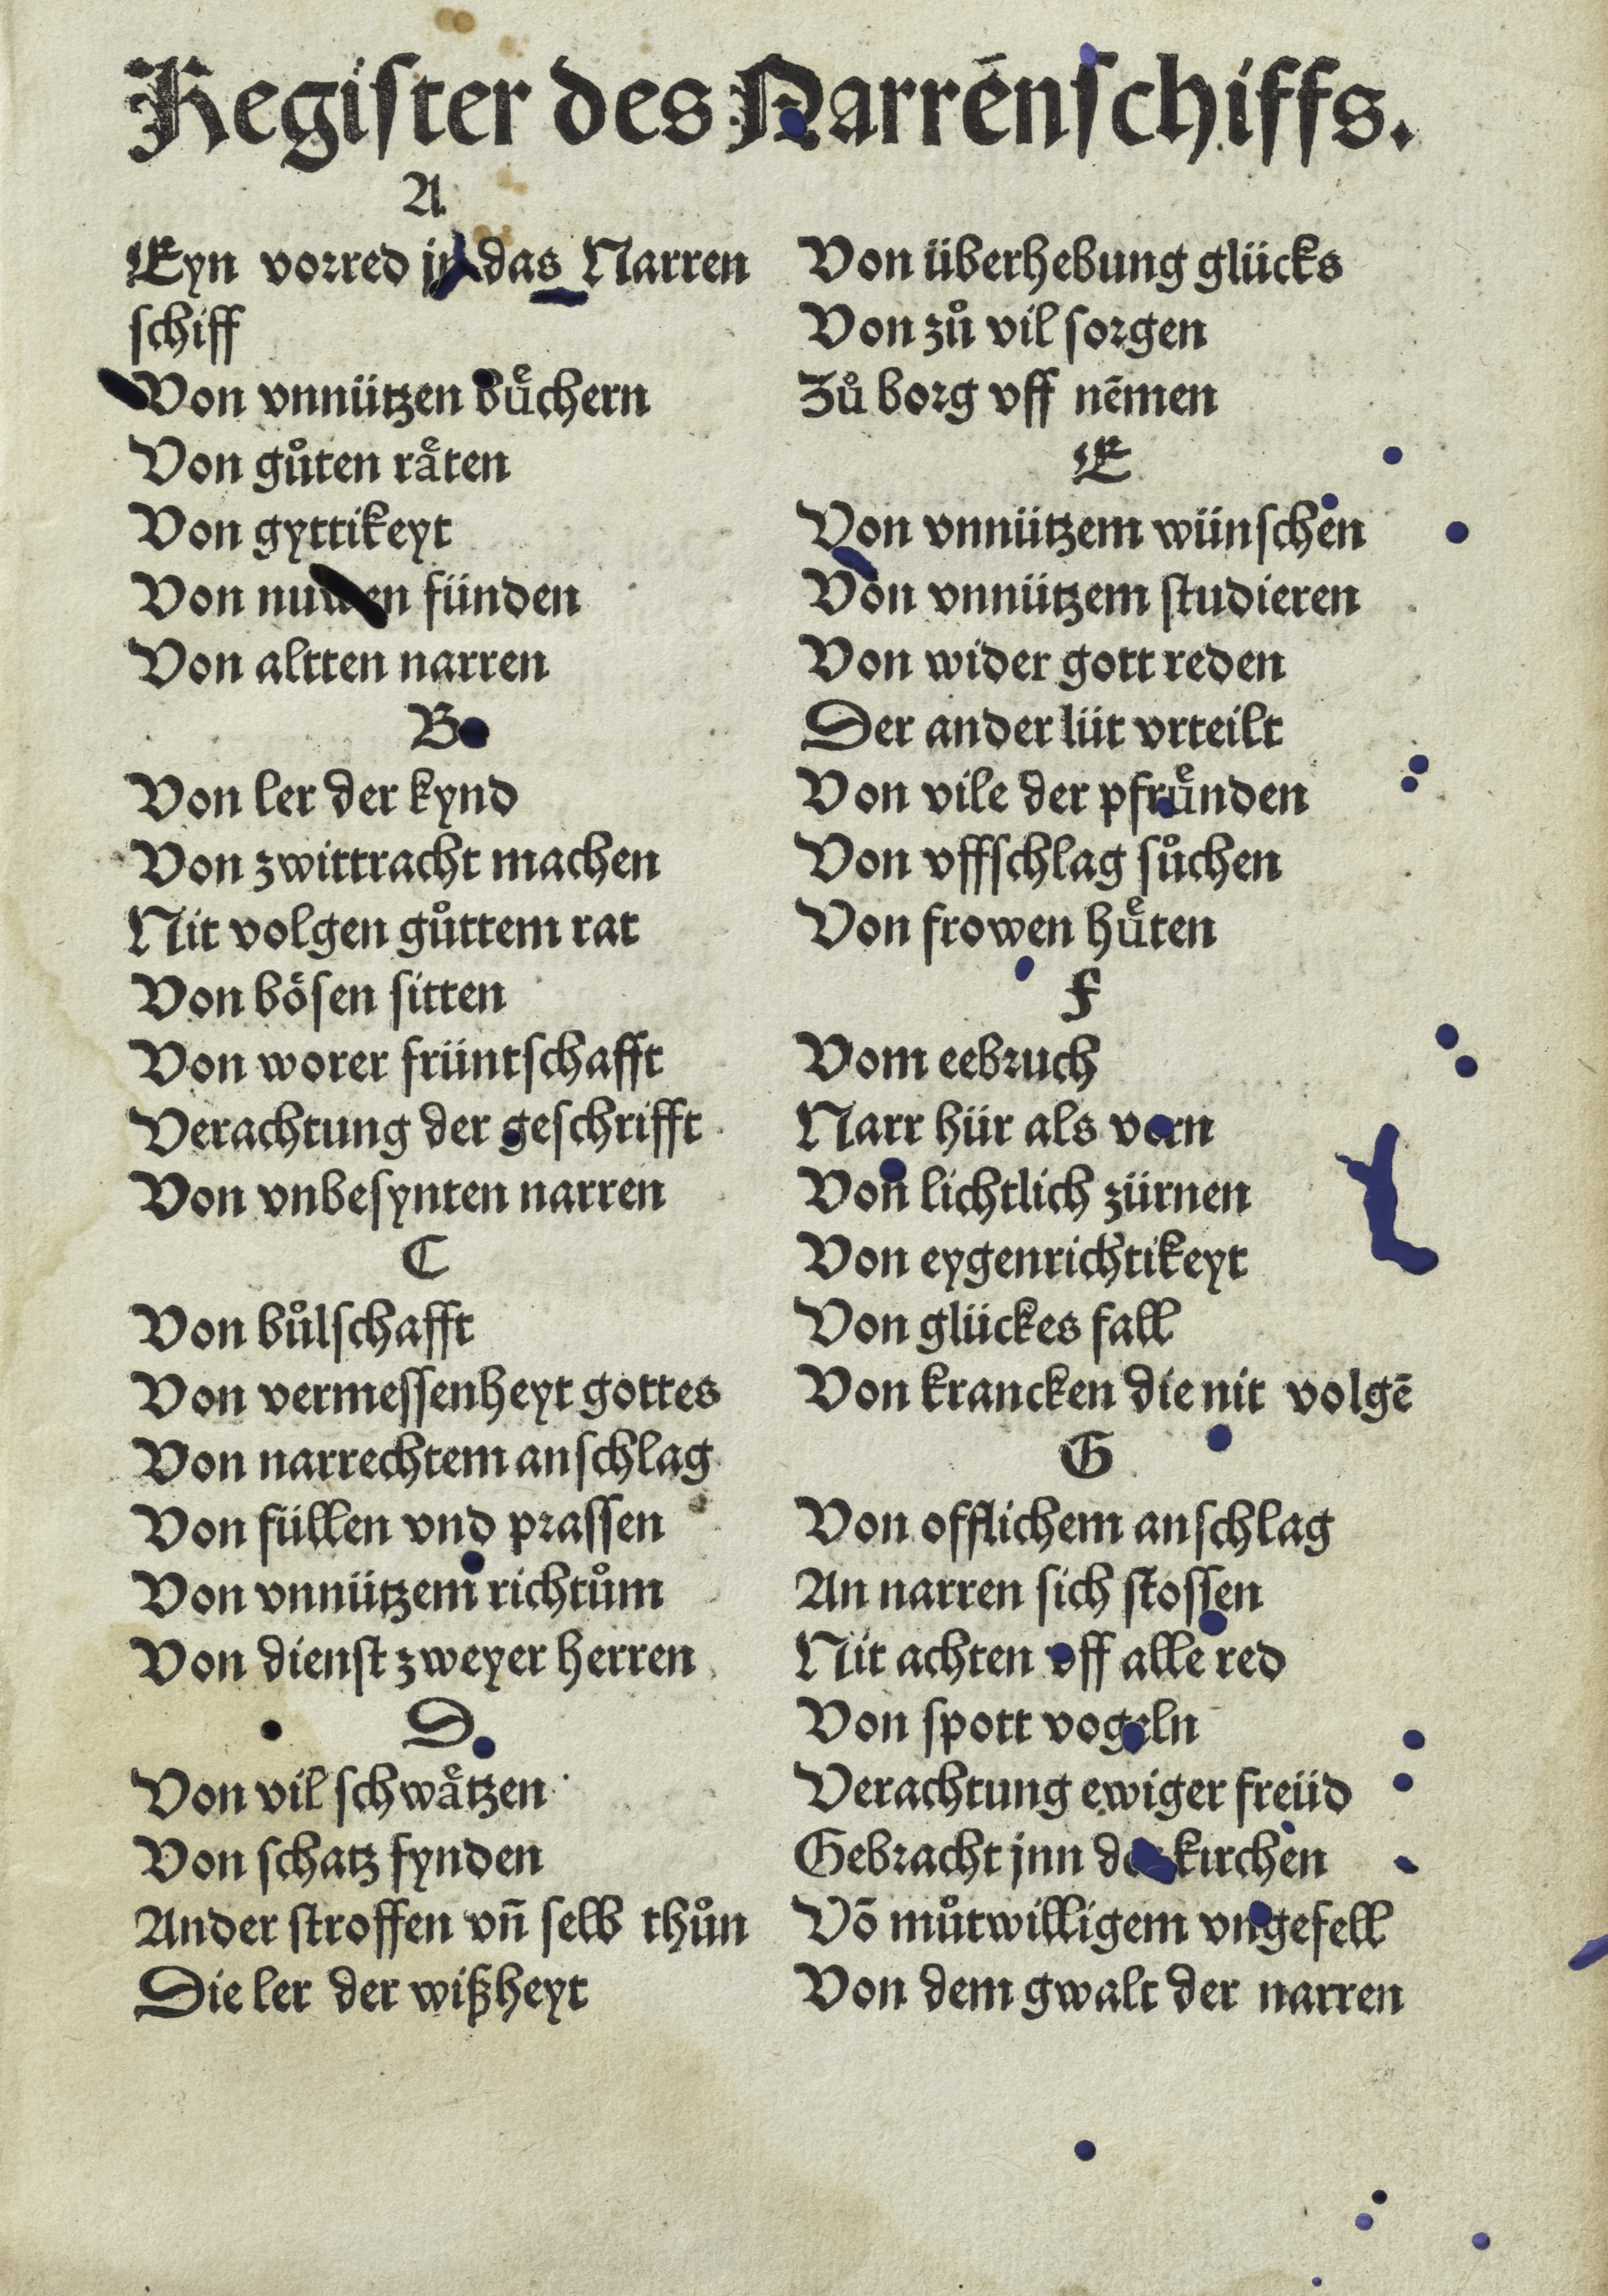 Regiſter des Narrēnſchiffs.
A
Eyn vorred jn das Narren
ſchiff
Von vnnützen buͤchern
Von guͦten raͤten
Von gyttikeyt
Von nuwen fünden
Von altten narren
B
Von ler der kynd
Von zwittracht machen
Nit volgen guͦttem rat
Von böſen ſitten
Von worer früntſchafft
Verachtung der geſchrifft
Von vnbeſynten narren
C
Von buͦlſchafft
Von vermeſſenheyt gottes
Von narrechtem anſchlag
Von füllen vnd praſſen
Von vnnützem richtuͦm
Von dienſt zweyer herren
D
Von vil ſchwaͤtzen
Von ſchatz fynden
Ander ſtroffen vn̄ ſelb thuͦn
Die ler der wißheyt
Von überhebung glücks
Von zuͦ vil ſorgen
Zuͦ borg vff nēmen
E
Von vnnützem wünſchen
Von vnnützem ſtudieren
Von wider gott reden
Der ander lüt vrteilt
Von vile der pfruͤnden
Von vffſchlag ſuͦchen
Von frowen huͤten
F
Vom eebruch
Narr hür als vern
Von lichtlich zürnen
Von eygenrichtikeyt
Von glückes fall
Von krancken die nit volgē
G
Von offlichem anſchlag
An narren ſich ſtoſſen
Nit achten vff alle red
Von ſpott vogeln
Verachtung ewiger freüd
Gebracht jnn der kirchen
Vō muͦtwilligem vngefell
Von dem gwalt der narren